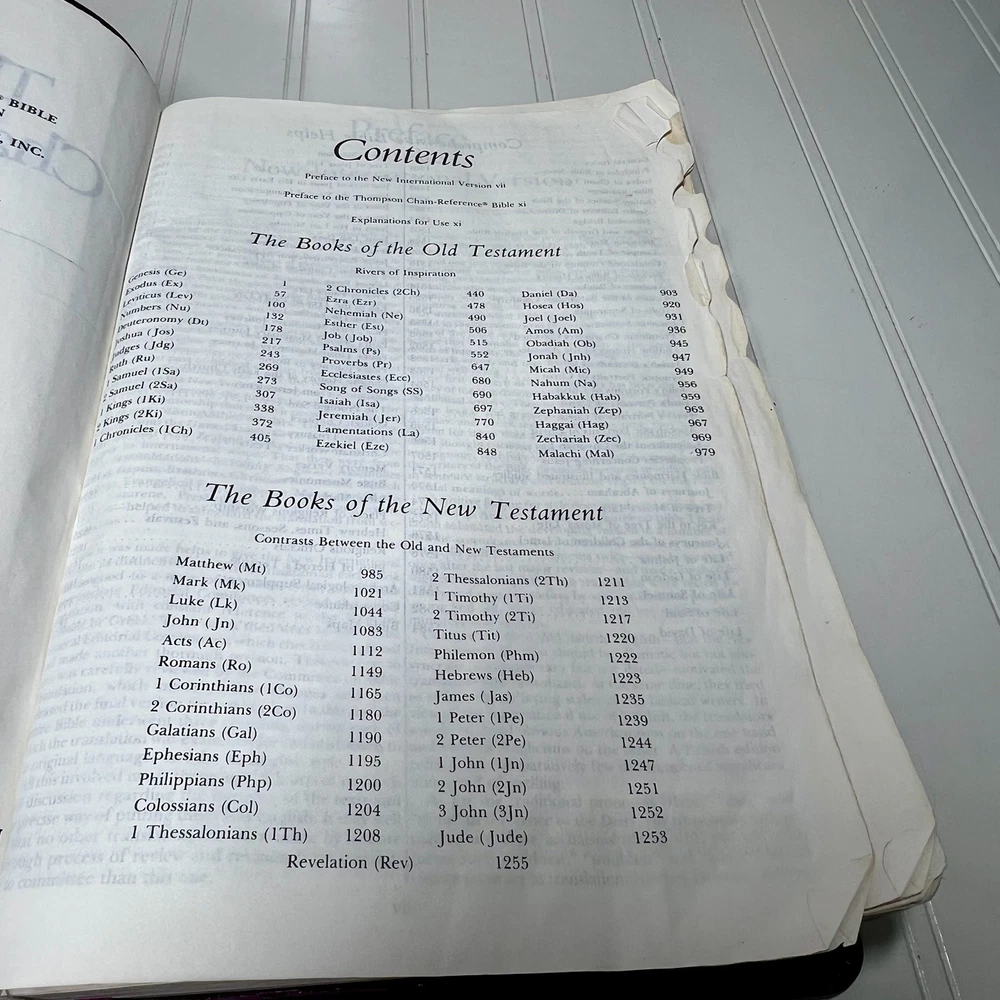 BIBLE
INC.
Contents
Preface to the New International Version vii
Preface to the Thompson Chain-Reference® Bible xi
Explanations for Use xi
The Books of the Old Testament
Rivers of Inspiration
Genesis (Ge) 1
Exodus (Ex) 57
Leviticus (Lev) 100
Numbers (Nu) 132
Deuteronomy (Dt) 178
Joshua (Jos) 217
Judges (Jdg) 243
Ruth (Ru) 269
1 Samuel (1Sa) 273
2 Samuel (2Sa) 307
1 Kings (1Ki) 338
2 Kings (2Ki) 372
1 Chronicles (1Ch) 405
2 Chronicles (2Ch) 440
Ezra (Ezr) 478
Nehemiah (Ne) 490
Esther (Est) 506
Job (Job) 515
Psalms (Ps) 552
Proverbs (Pr) 647
Ecclesiastes (Ecc) 680
Song of Songs (SS) 690
Isaiah (Isa) 697
Jeremiah (Jer) 770
Lamentations (La) 840
Ezekiel (Eze) 848
Daniel (Da) 903
Hosea (Hos) 920
Joel (Joel) 931
Amos (Am) 936
Obadiah (Ob) 945
Jonah (Jnh) 947
Micah (Mic) 949
Nahum (Na) 956
Habakkuk (Hab) 959
Zephaniah (Zep) 963
Haggai (Hag) 967
Zechariah (Zec) 969
Malachi (Mal) 979
The Books of the New Testament
Contrasts Between the Old and New Testaments
Matthew (Mt) 985
Mark (Mk) 1021
Luke (Lk) 1044
John (Jn) 1083
Acts (Ac) 1112
Romans (Ro) 1149
1 Corinthians (1Co) 1165
2 Corinthians (2Co) 1180
Galatians (Gal) 1190
Ephesians (Eph) 1195
Philippians (Php) 1200
Colossians (Col) 1204
1 Thessalonians (1Th) 1208
2 Thessalonians (2Th) 1211
1 Timothy (1Ti) 1213
2 Timothy (2Ti) 1217
Titus (Tit) 1220
Philemon (Phm) 1222
Hebrews (Heb) 1223
James (Jas) 1235
1 Peter (1Pe) 1239
2 Peter (2Pe) 1244
1 John (1Jn) 1247
2 John (2Jn) 1251
3 John (3Jn) 1252
Jude (Jude) 1253
Revelation (Rev) 1255